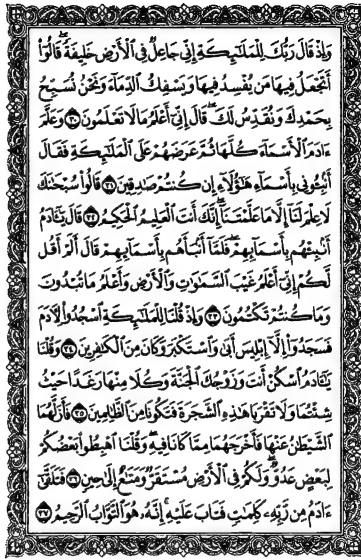 وَإِذْ قَالَ رَبُّكَ لِلْمَلَـٰٓئِكَةِ إِنِّى جَاعِلٌ فِى ٱلْأَرْضِ خَلِيفَةً ۖ قَالُوٓا۟
أَتَجْعَلُ فِيهَا مَن يُفْسِدُ فِيهَا وَيَسْفِكُ ٱلدِّمَآءَ وَنَحْنُ نُسَبِّحُ
بِحَمْدِكَ وَنُقَدِّسُ لَكَ ۖ قَالَ إِنِّىٓ أَعْلَمُ مَا لَا تَعْلَمُونَ ۝٣٠ وَعَلَّمَ
ءَادَمَ ٱلْأَسْمَآءَ كُلَّهَا ثُمَّ عَرَضَهُمْ عَلَى ٱلْمَلَـٰٓئِكَةِ فَقَالَ
أَنۢبِـُٔونِى بِأَسْمَآءِ هَـٰٓؤُلَآءِ إِن كُنتُمْ صَـٰدِقِينَ ۝٣١ قَالُوا۟ سُبْحَـٰنَكَ
لَا عِلْمَ لَنَآ إِلَّا مَا عَلَّمْتَنَآ ۖ إِنَّكَ أَنتَ ٱلْعَلِيمُ ٱلْحَكِيمُ ۝٣٢ قَالَ يَـٰٓـَٔادَمُ
أَنۢبِئْهُم بِأَسْمَآئِهِمْ ۖ فَلَمَّآ أَنۢبَأَهُم بِأَسْمَآئِهِمْ قَالَ أَلَمْ أَقُل
لَّكُمْ إِنِّىٓ أَعْلَمُ غَيْبَ ٱلسَّمَـٰوَٰتِ وَٱلْأَرْضِ وَأَعْلَمُ مَا تُبْدُونَ
وَمَا كُنتُمْ تَكْتُمُونَ ۝٣٣ وَإِذْ قُلْنَا لِلْمَلَـٰٓئِكَةِ ٱسْجُدُوا۟ لِـَٔادَمَ
فَسَجَدُوٓا۟ إِلَّآ إِبْلِيسَ أَبَىٰ وَٱسْتَكْبَرَ وَكَانَ مِنَ ٱلْكَـٰفِرِينَ ۝٣٤ وَقُلْنَا
يَـٰٓـَٔادَمُ ٱسْكُنْ أَنتَ وَزَوْجُكَ ٱلْجَنَّةَ وَكُلَا مِنْهَا رَغَدًا حَيْثُ
شِئْتُمَا وَلَا تَقْرَبَا هَـٰذِهِ ٱلشَّجَرَةَ فَتَكُونَا مِنَ ٱلظَّـٰلِمِينَ ۝٣٥ فَأَزَلَّهُمَا
ٱلشَّيْطَـٰنُ عَنْهَا فَأَخْرَجَهُمَا مِمَّا كَانَا فِيهِ ۖ وَقُلْنَا ٱهْبِطُوا۟ بَعْضُكُمْ
لِبَعْضٍ عَدُوٌّ ۖ وَلَكُمْ فِى ٱلْأَرْضِ مُسْتَقَرٌّ وَمَتَـٰعٌ إِلَىٰ حِينٍ ۝٣٦ فَتَلَقَّىٰٓ
ءَادَمُ مِن رَّبِّهِۦ كَلِمَـٰتٍ فَتَابَ عَلَيْهِ ۚ إِنَّهُۥ هُوَ ٱلتَّوَّابُ ٱلرَّحِيمُ ۝٣٧